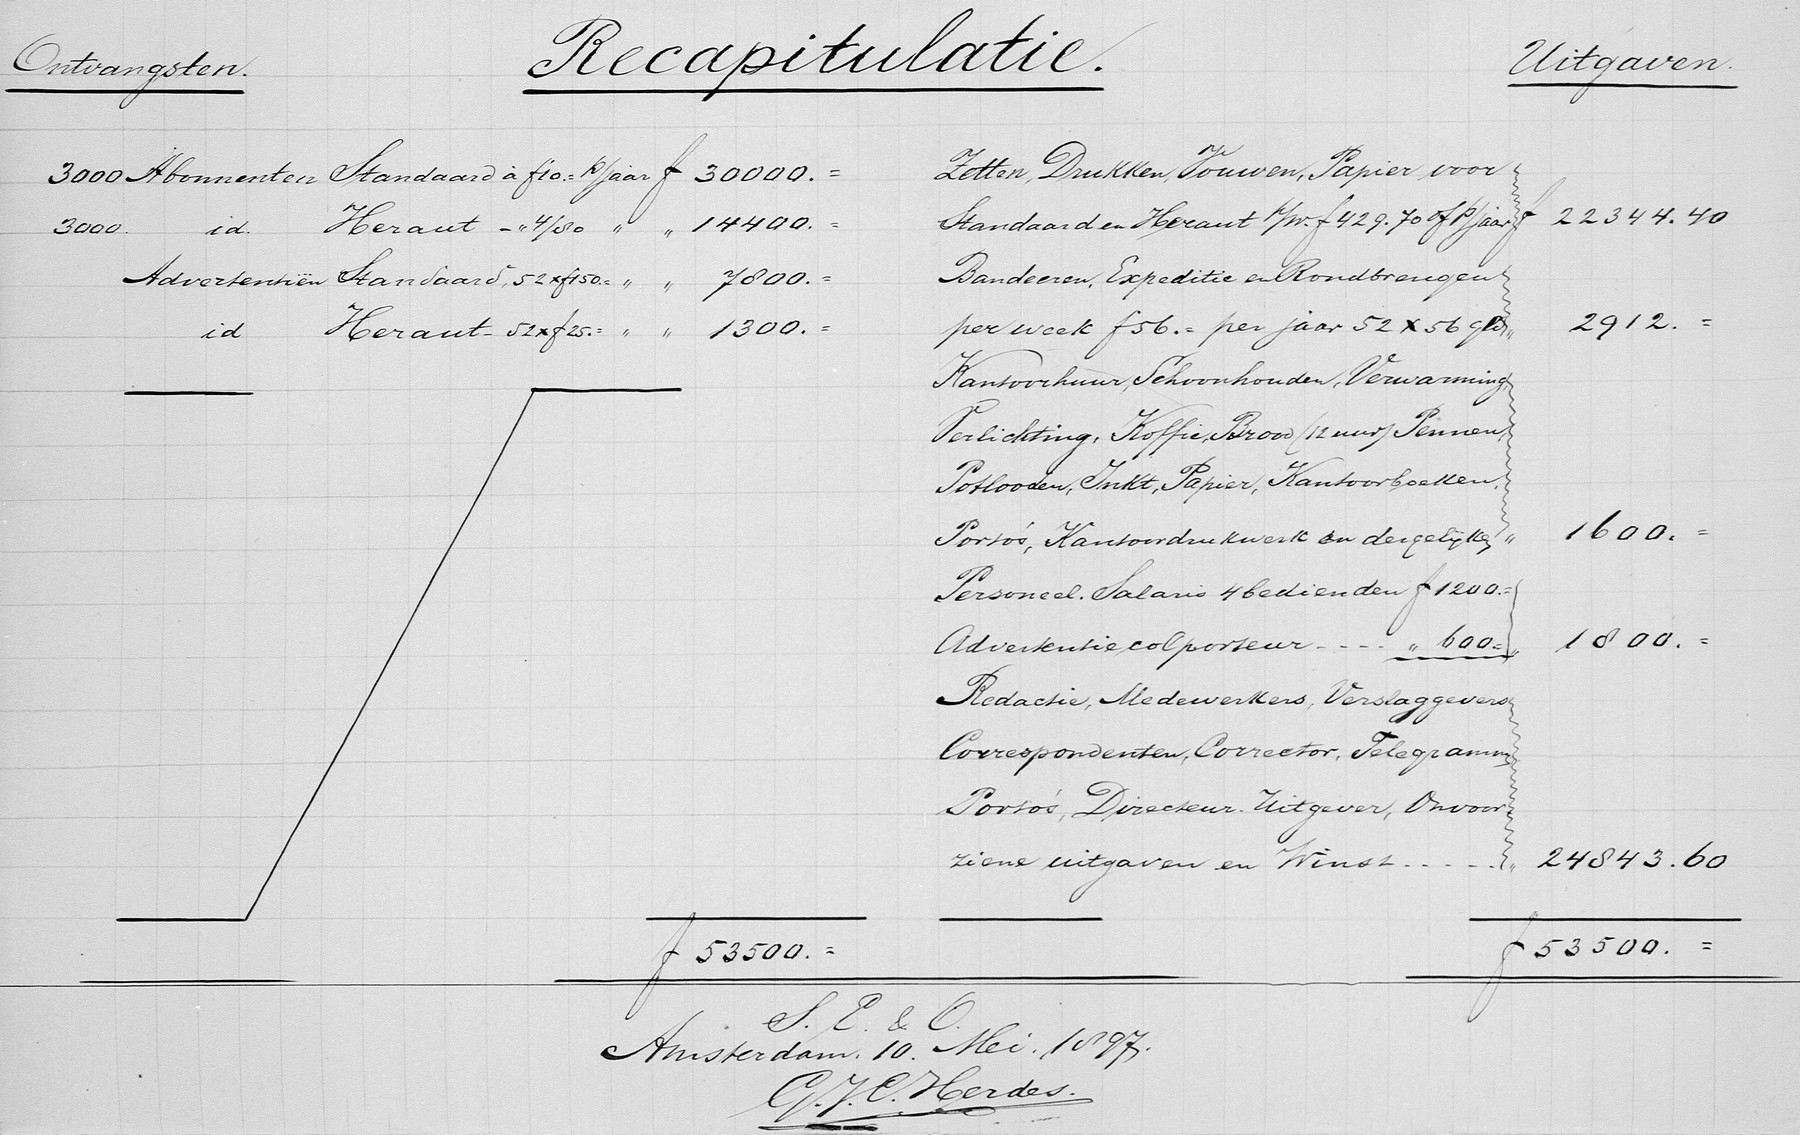 Recapitulatie.
Ontvangsten.
3000 Abonnenten Standaard à f10.= p/jaar f 30000.=
3000. id. Heraut - „ 4/80 „ „ 14400.=
Advertentiën Standaard, 52 x f150.= „ „ 7800.=
id Heraut - 52 x f25.= „ „ 1300.=
f 53500.=
Uitgaven.
Zetten, Drukken, Vouwen, Papier voor
Standaard en Heraut p/w. f 429.70 of p/jaar f 22344.40
Bandeeren, Expeditie en Rondbrengen
per week f 56.= per jaar 52 x 56 gld „ 2912.=
Kantoorhuur, Schoonhouden, Verwarming,
Verlichting, Koffie, Brood (12 uur) Pennen,
Potlooden, Inkt, Papier, Kantoorboeken,
Porto's, Kantoordrukwerk en dergelijke „ 1600.=
Personeel. Salaris 4 bedienden f 1200.=
Advertentie colporteur - - - - „ 600.= „ 1800.=
Redactie, Medewerkers, Verslaggevers
Correspondenten, Corrector, Telegramm
Porto's, Directeur-Uitgever, Onvoor-
ziene uitgaven en Winst - - - - - „ 24843.60
f 53500.=
S. E. & O.
Amsterdam. 10. Mei. 1897.
G.J.C. Herdes.